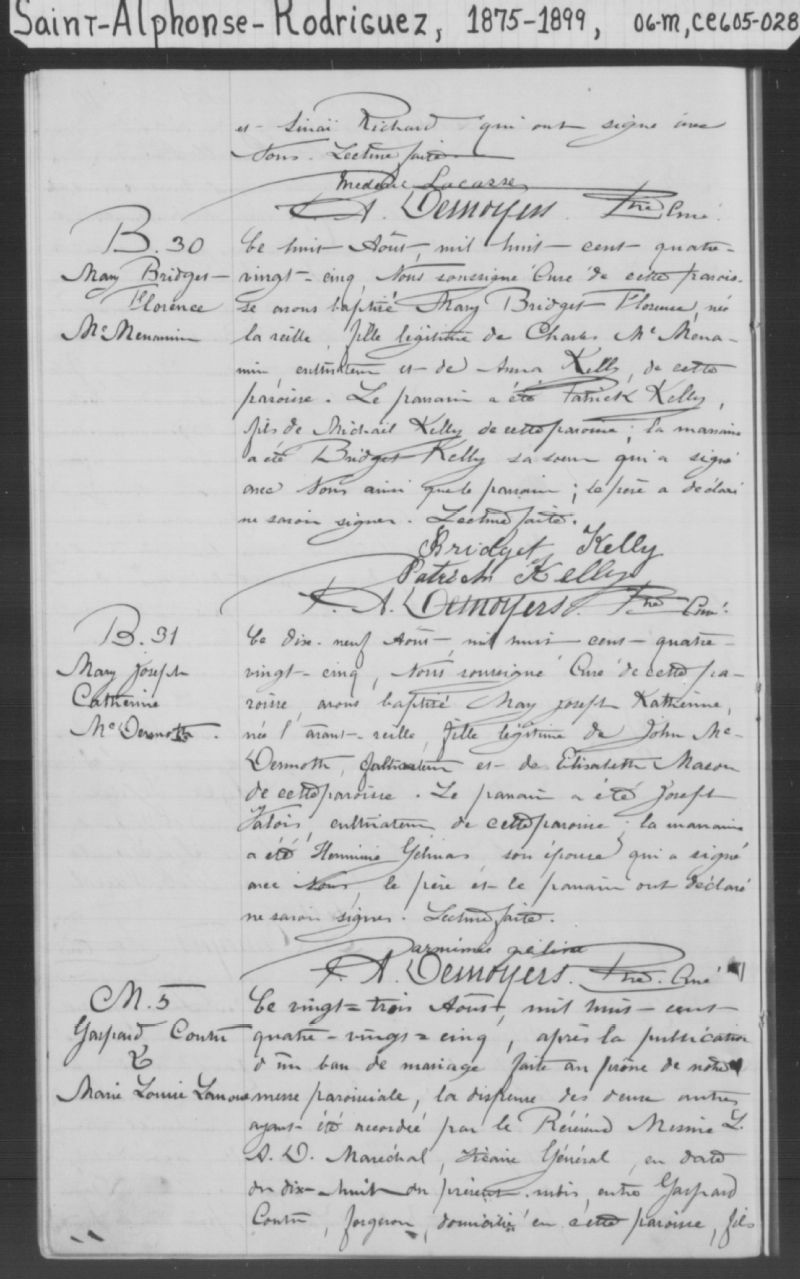 Saint-Alphonse-Rodriguez, 1875-1899, 06-M, CE605-028
et Sinaï Richard qui ont signé avec
Nous. Lecture faite.
Mederic Lacasse
A. Desnoyers. Ptre Curé.
B. 30
Mary Bridget
Florence
McMenamin
Le huit Août, mil huit cent quatre-
vingt-cinq, Nous soussigné Curé de cette parois-
se avons baptisé Mary Bridget Florence, née
la veille, fille légitime de Charles McMena-
min cultivateur et de Anna Kelly, de cette
paroisse. Le parrain a été Patrick Kelly,
fils de Michaël Kelly de cette paroisse; la marraine
a été Bridget Kelly sa soeur qui a signé
avec Nous ainsi que le parrain; le père a déclaré
ne savoir signer. Lecture faite.
Bridget Kelly
Patrick Kelly
A. Desnoyers. Ptre Curé.
B. 31
Mary Joseph
Catherine
McDermott
Le dix-neuf Août, mil huit cent quatre-
vingt-cinq, Nous soussigné Curé de cette pa-
roisse, avons baptisé Mary Joseph Katherine,
née l'avant-veille, fille légitime de John Mc-
Dermott, cultivateur et de Elisabeth Mason
de cette paroisse. Le parrain a été Joseph
Valois, cultivateur de cette paroisse; la marraine
a été Hermine Gélinas son épouse qui a signé
avec Nous, le père et le parrain ont déclaré
ne savoir signer. Lecture faite.
A. Desnoyers. Ptre. Curé
M. 5
Gaspard Coutu
&
Marie Louise Lanoue
Le vingt-trois Août, mil huit-cent
quatre-vingt-cinq, après la publication
d'un ban de mariage faite au prône de notre
messe paroissiale, la dispense des deux autres
ayant été accordée par le Révérend Messire L.
A. D. Maréchal, Vicaire Général, en date
du dix-huit du présent mois, entre Gaspard
Coutu, forgeron, domicilié en cette paroisse, fils